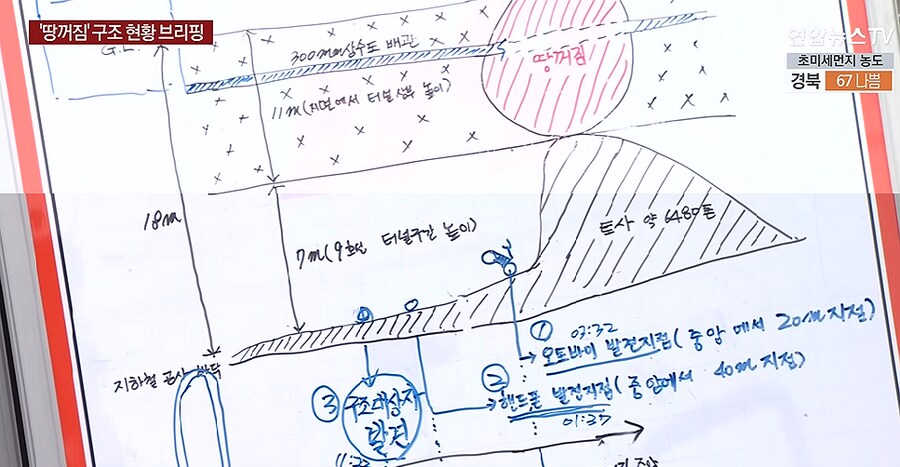 '땅꺼짐' 구조 현황 브리핑
연합뉴스TV
초미세먼지 농도
경북 67 나쁨
G.L
300mm상수도 배관
땅꺼짐
11m(지면에서 터널상부 높이)
18m
7m(9호선 터널구간 높이)
토사 약 6480톤
① 03:32
오토바이 발견지점(중앙에서 20m지점)
지하철 공사 바닥
②
핸드폰 발견지점(중앙에서 40m지점)
01:37
③ 구조대상자
발견